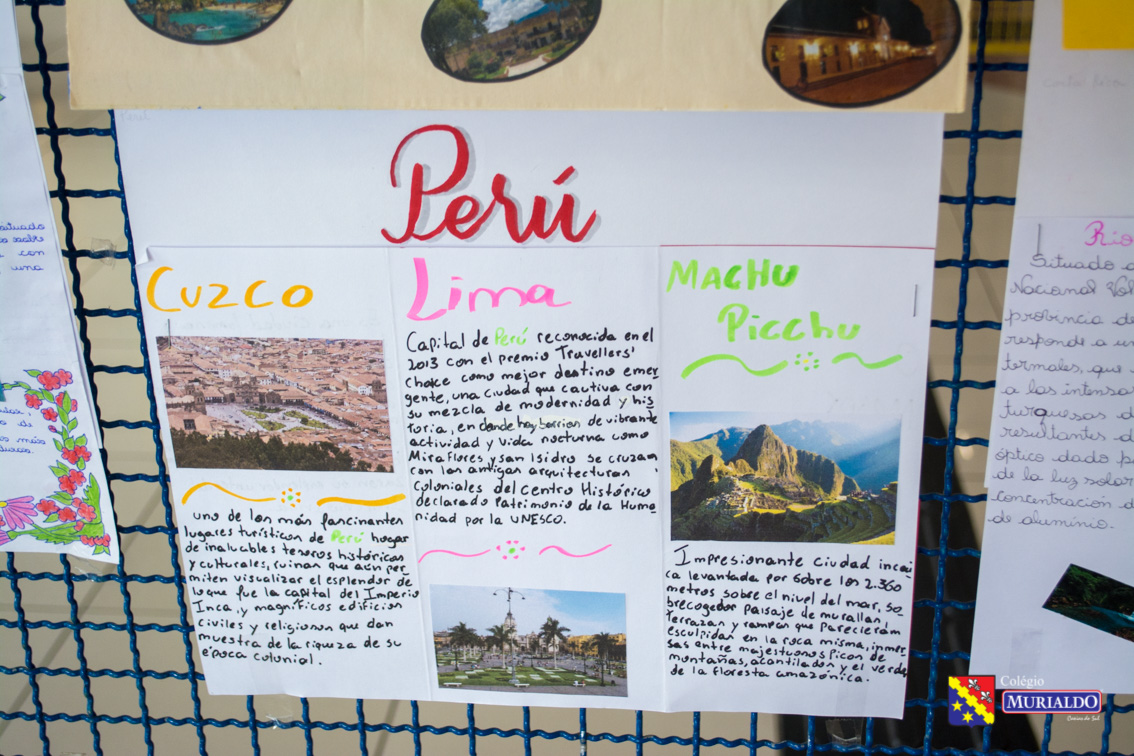 Perú
Cuzco
uno de los más fascinantes
lugares turísticos de Perú hogar
de inaluables tesoros históricos
y culturales, ruinas que aún per
miten visualizar el esplendor de
lo que fue la capital del Imperio
Inca, y magníficos edificios
civiles y religiosos que dan
muestra de la riqueza de su
época colonial.
Lima
Capital de Perú reconocida en el
2013 con el premio Travellers'
Choice como mejor destino emer
gente, una ciudad que cautiva con
su mezcla de modernidad y his
toria, en donde hay barrios de vibrante
actividad y vida nocturna como
Miraflores y san Isidro se cruzan
con las antigas arquitecturas
Coloniales del Centro Histórico
declarado Patrimonio de la Huma
nidad por la UNESCO.
MACHU
Picchu
Impresionante ciudad incai
ca levantada por sobre los 2.360
metros sobre el nivel del mar, so
brecogedor paisaje de murallas,
terrazas y rampas que parecieram
esculpidas en la roca misma, inmer
sas entre majestuosos picos de
montañas, acantilados y el verde
de la floresta amazónica.
situado
con
una
Río
Situado
Nacional Vol
provincia de
responde a un
termales, que
a las intensa
turquesas d
resultantes d
óptico dado p
de la luz solar
concentración d
de aluminio.
Colégio
MURIALDO
Caxias do Sul